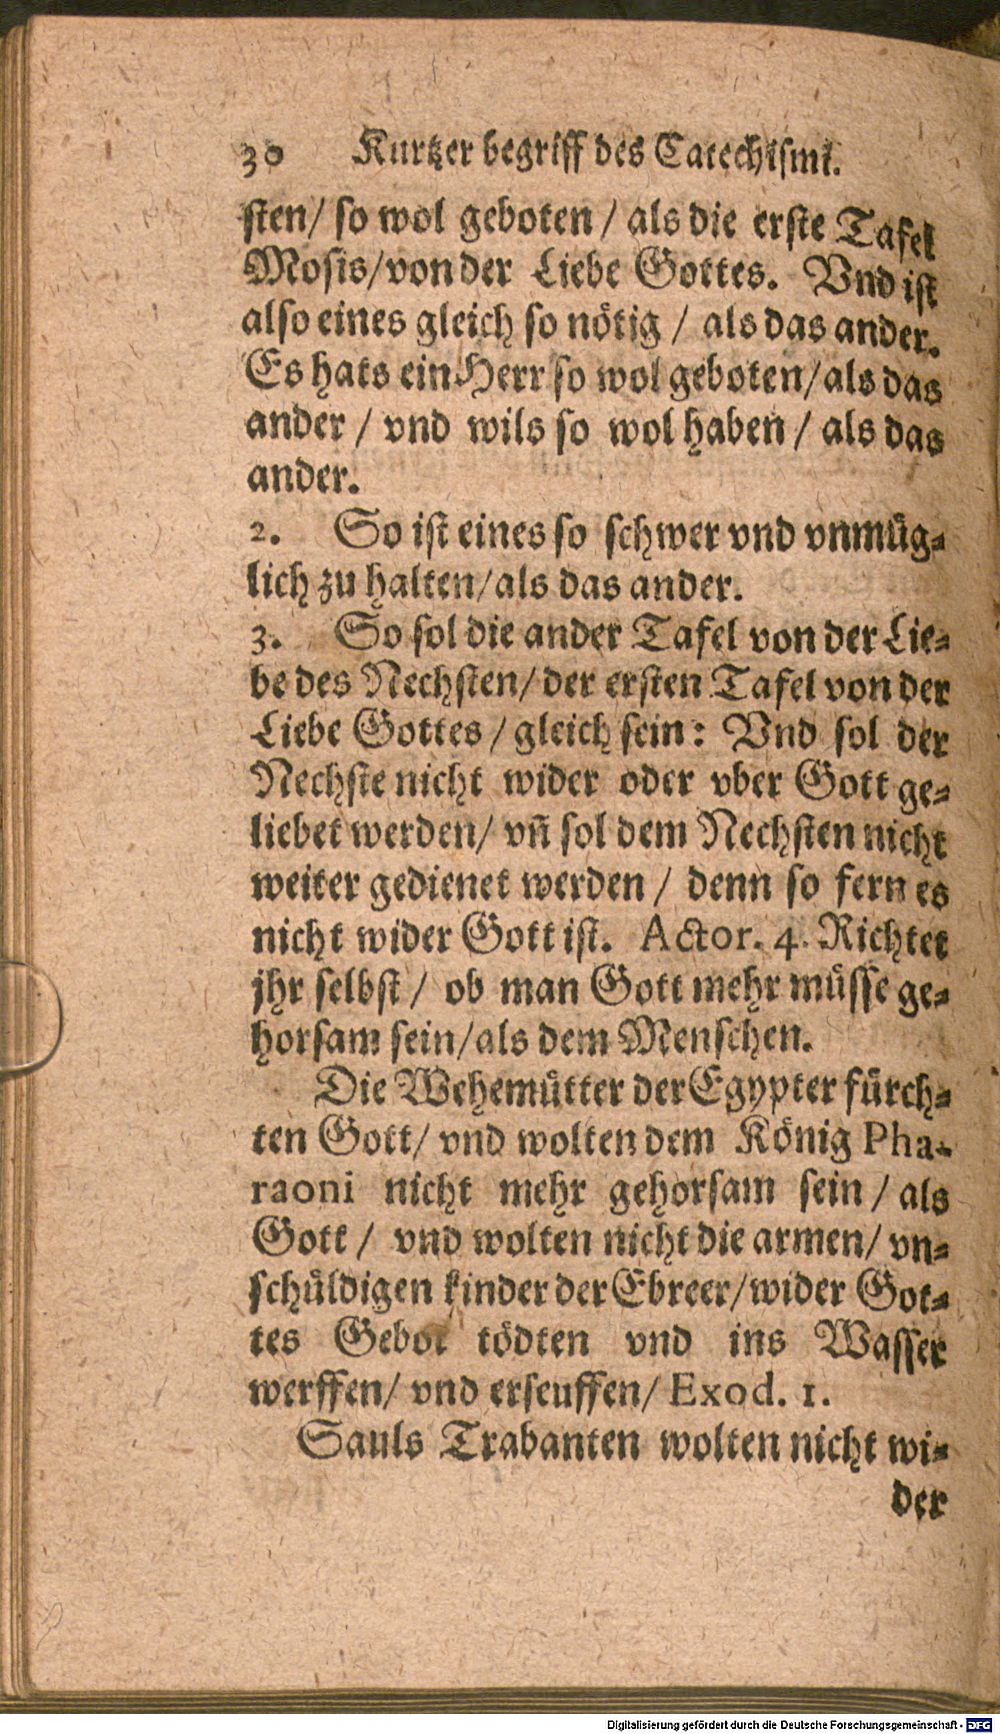 30 Kurtzer begriff des Catechismi.
sten/ so wol geboten / als die erste Tafel
Mosis/von der Liebe Gottes. Vnd ist
also eines gleich so nötig / als das ander.
Es hats ein Herr so wol geboten/als das
ander / vnd wils so wol haben / als das
ander.
2. So ist eines so schwer vnd vnmüg-
lich zu halten/als das ander.
3. So sol die ander Tafel von der Lie-
be des Nechsten/ der ersten Tafel von der
Liebe Gottes / gleich sein: Vnd sol der
Nechste nicht wider oder vber Gott ge-
liebet werden/ vñ sol dem Nechsten nicht
weiter gedienet werden / denn so fern es
nicht wider Gott ist. Actor. 4. Richtet
jhr selbst / ob man Gott mehr müsse ge-
horsam sein/als dem Menschen.
Die Wehemütter der Egypter fürch-
ten Gott/ vnd wolten dem König Pha-
raoni nicht mehr gehorsam sein / als
Gott / vnd wolten nicht die armen/ vn-
schüldigen kinder der Ebreer/wider Got-
tes Gebot tödten vnd ins Wasser
werffen/ vnd erseuffen/ Exod. 1.
Sauls Trabanten wolten nicht wi-
der
Digitalisierung gefördert durch die Deutsche Forschungsgemeinschaft - DFG